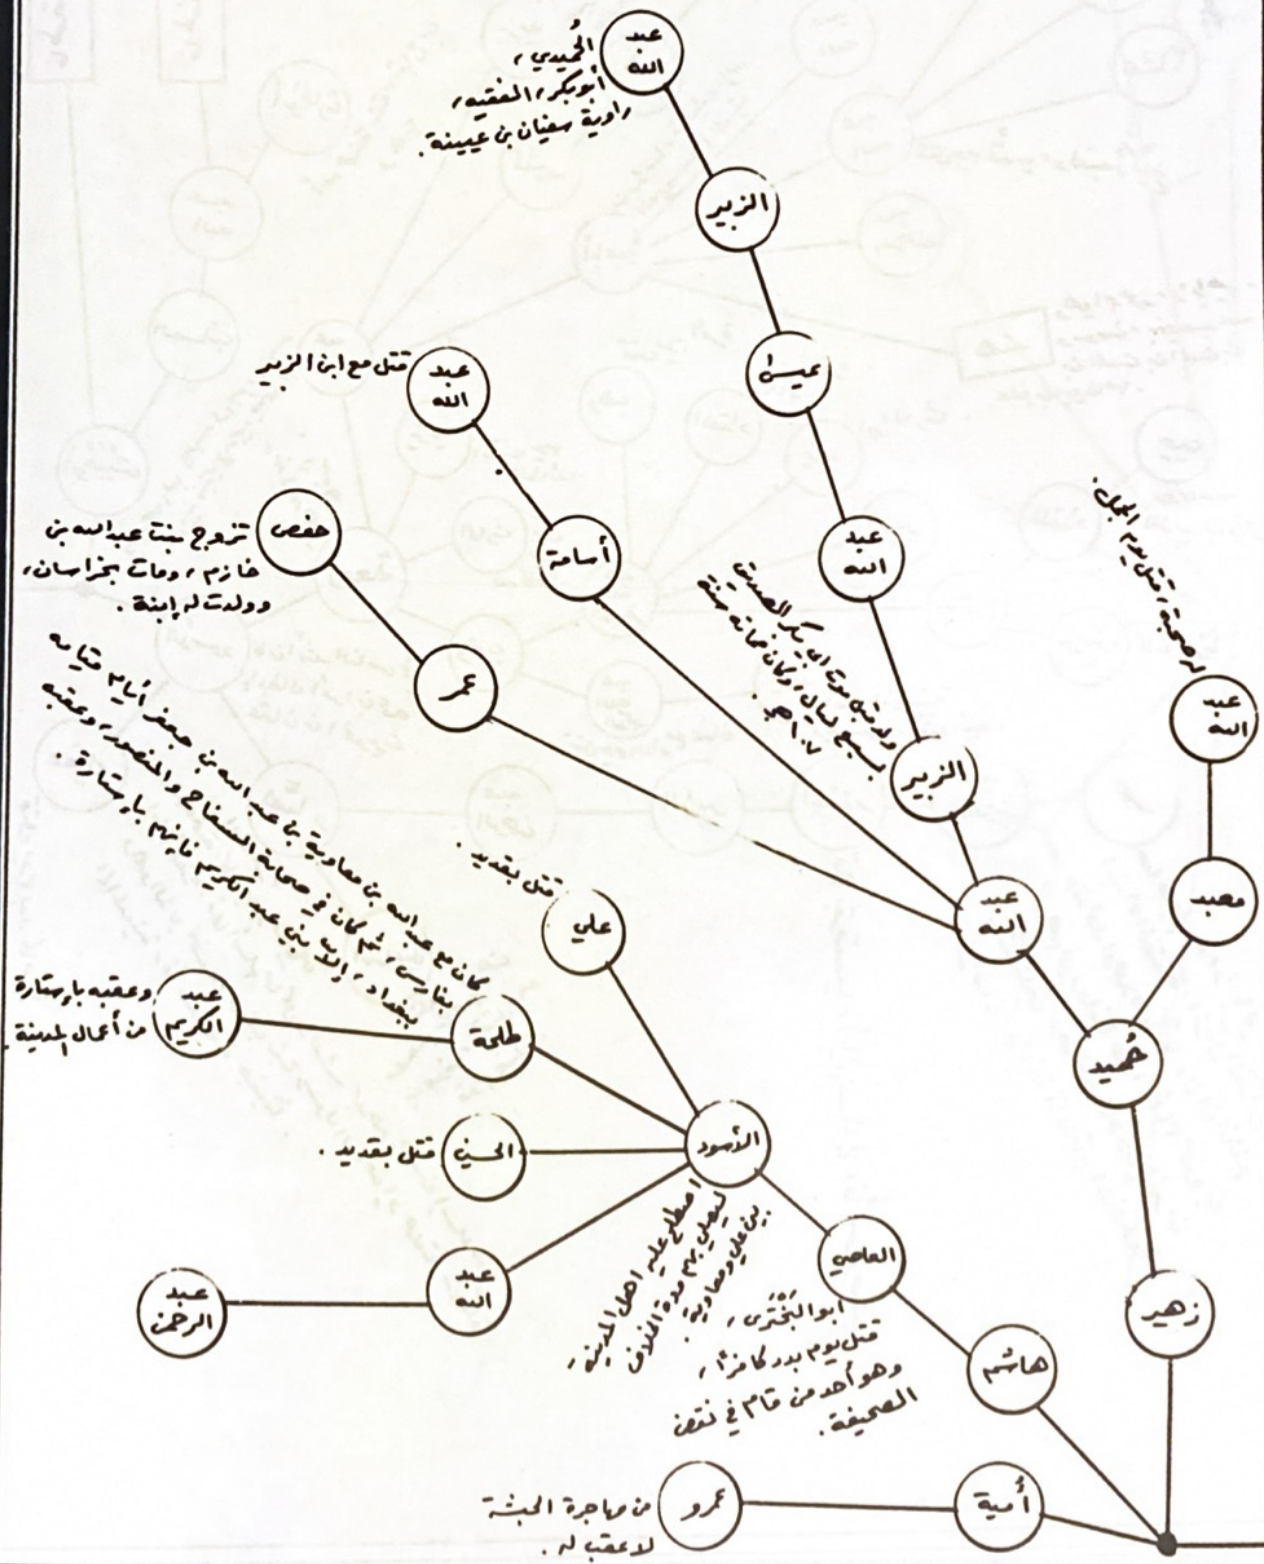 عبد
الله
الحُميدي،
أبو بكر، الفقيه،
راوية سفيان بن عيينة.
الزبير
عيسى
عبد
الله
قتل مع ابن الزبير
أسامة
عبد
الله
حفص
تزوج بنت عبد الله بن
خازم، ومات بخراسان،
وولدت له إبنة.
عمر
ولد قبل موت أبي بكر الصديق
بسبع ليال، وكان مماته سنة
١٠٧هـ.
الزبير
له صحبة، قتل يوم الجمل.
عبد
الله
معبد
عبد
الله
حُميد
قتل بقديد.
علي
كان مع عبد الله بن معاوية بن عبد الله بن جعفر أيام قيامه
بفارس، ثم كان في صحابة السفاح والمنصور، وعقبه
ببغداد، إلا بني عبد الكريم فإنهم بإستارة.
طلحة
عبد
الكريم
وعقبه بإستارة
من أعمال المدينة.
الحسين
قتل بقديد.
الأسود
اصطلح عليه أهل المدينة،
ليصلي بهم مدة الخلاف
بين علي ومعاوية.
عبد
الله
عبد
الرحمن
العاصي
أبو البَخْتَري،
قتل يوم بدر كافرًا،
وهو أحد من قام في نقض
الصحيفة.
زهير
هاشم
أُمية
عمرو
من مهاجرة الحبشة
لا عقب له.